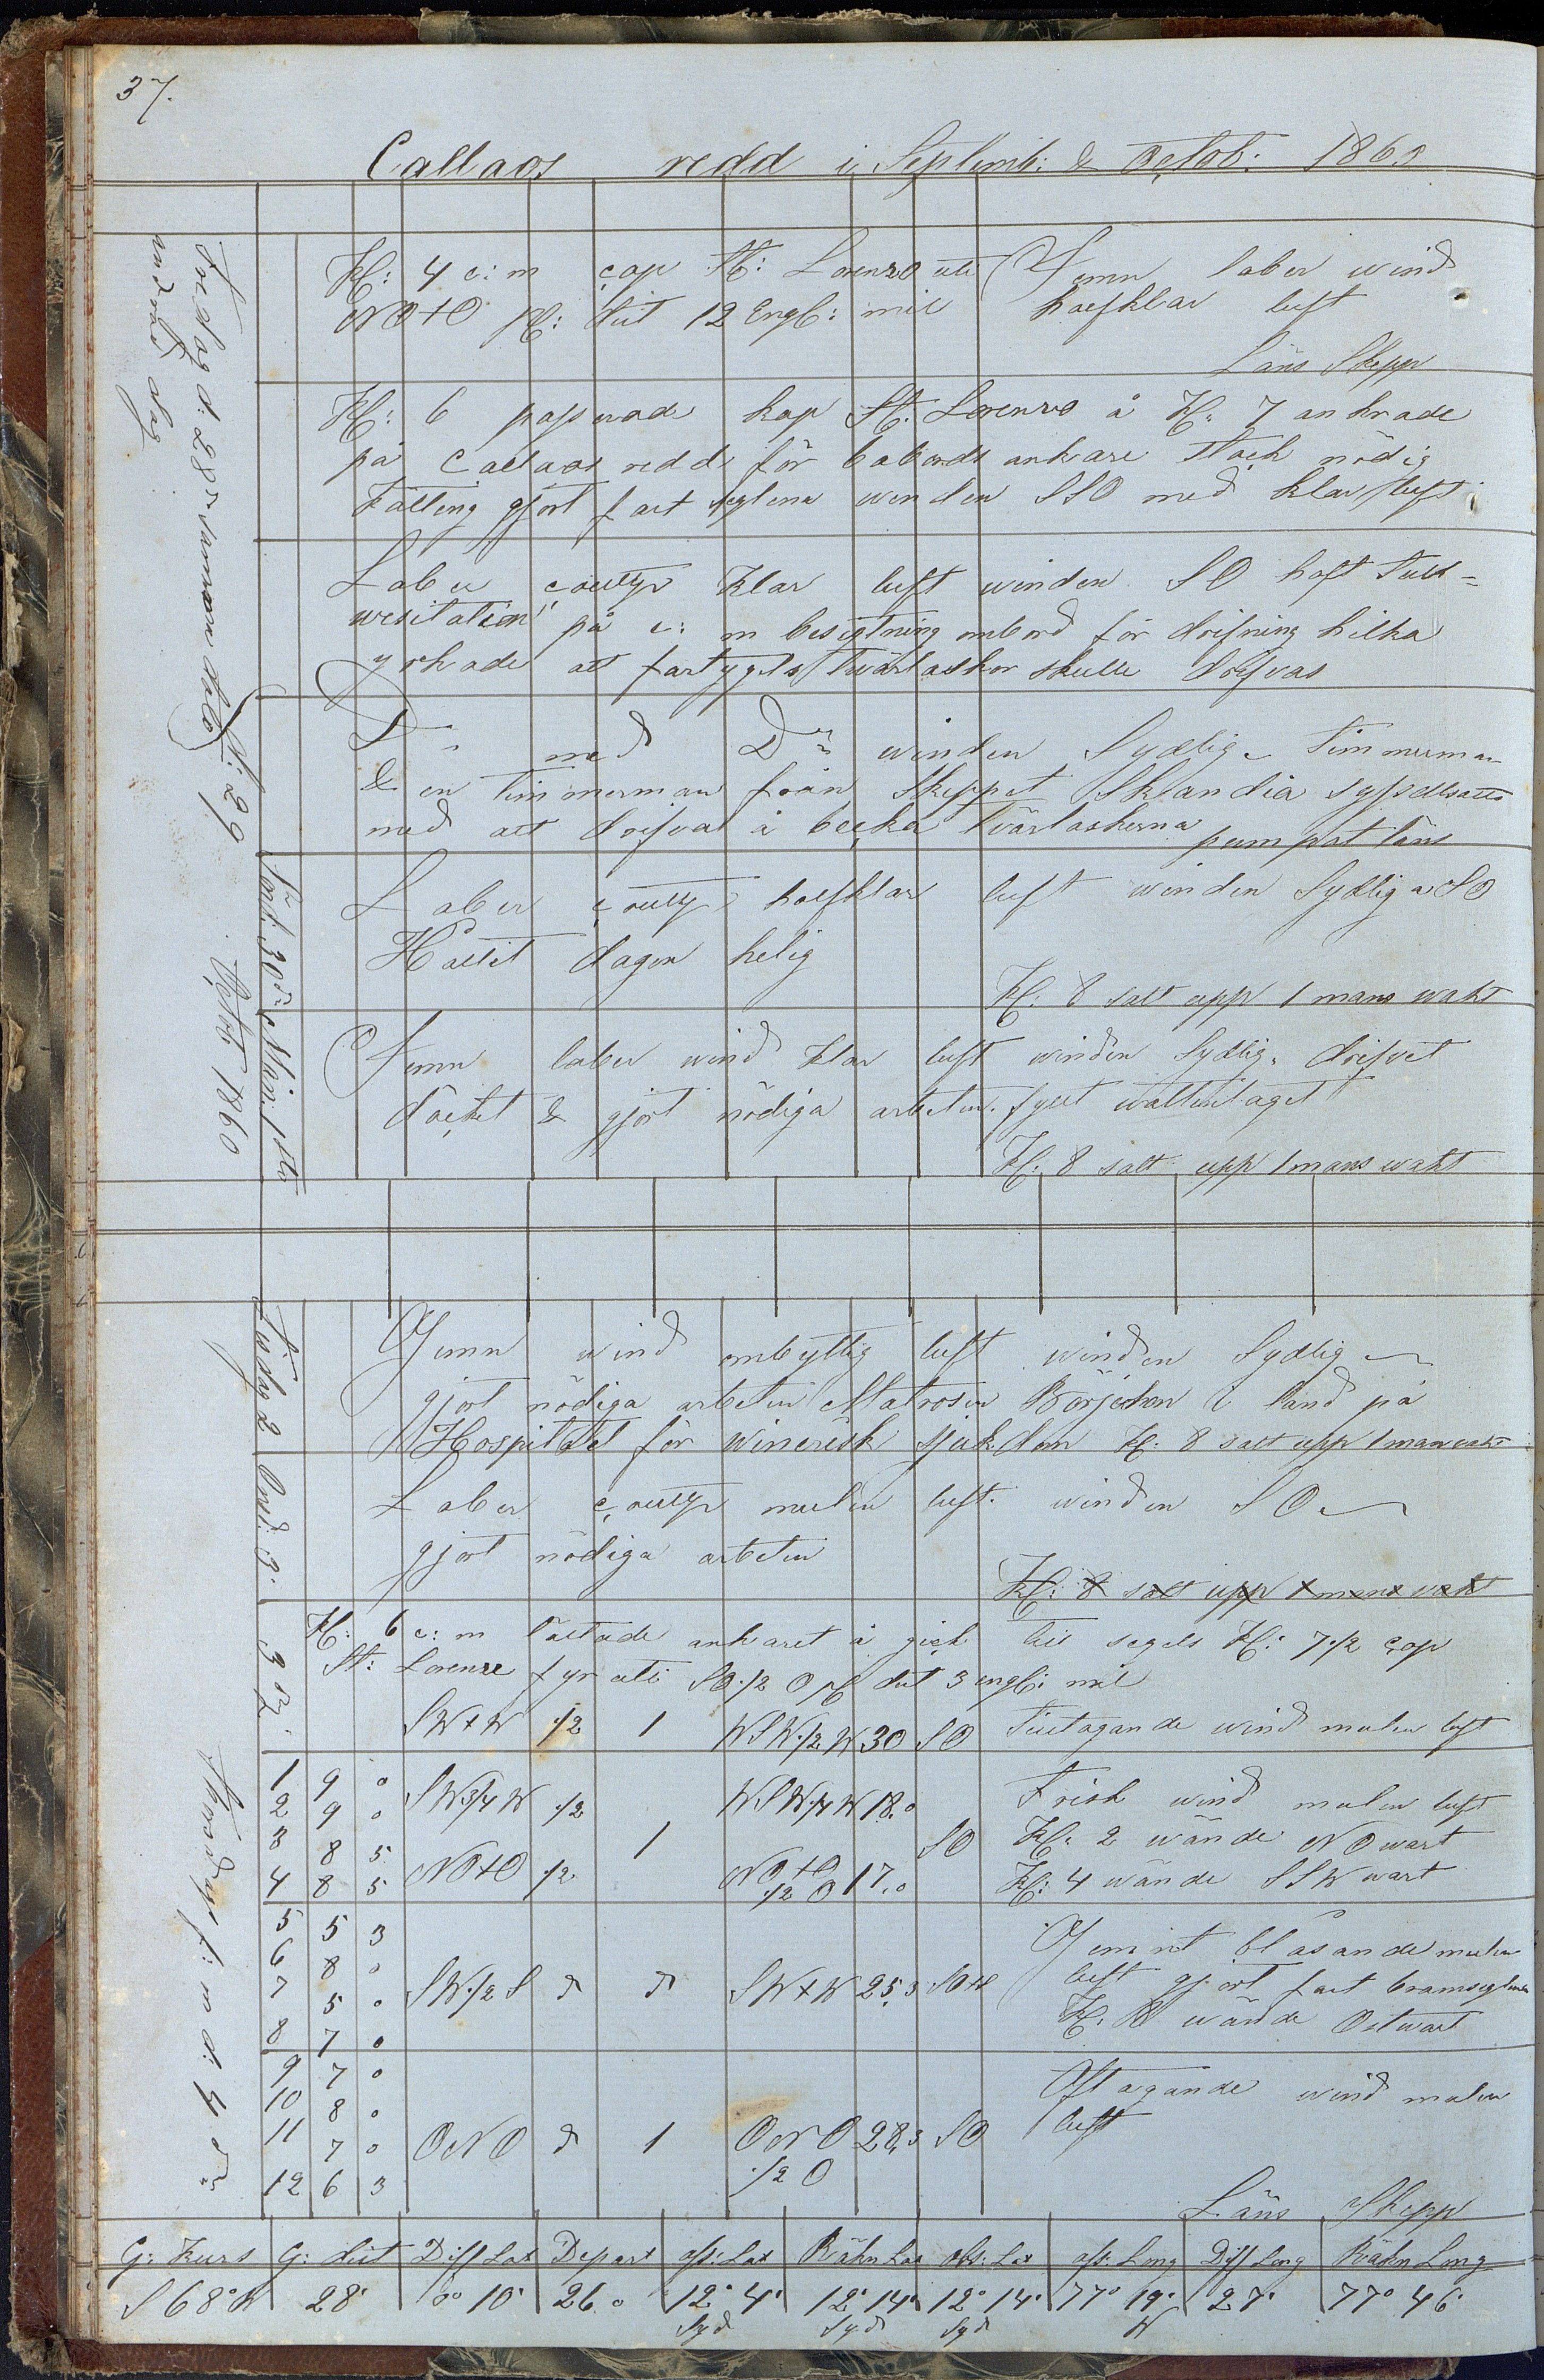 37.
Callaos redd i Septemb: & Octob: 1860
Fredag d: 28de samma dato
Kl: 4 e: m cap St: Lorenzo uti Jemn laber wind
NO+O pl: dist 12 Engl: mil halfklar luft
Läns Skepp
Kl: 6 passerade kap St. Lorenzo å Kl: 7 ankrade
på Callaos redd för babords ankare stack nödig
Tätting gjort fast seglena winden SSO med klar luft
L: 29
Laber coultje klar luft winden SO haft Tull=
wesitation på e: m besigtning ombord för drifning hilka
yrkade att fartygets twärlaskor skulle drifvas
Do med Do winden Sydlig Timmerman
& en Timmerman från Skeppet Skandia sysselsatts
med att drifva å becka Tvärlaskerna pumpat läns
Sönd: 30de
Laber coultje halfklar luft winden Sydlig a SO
Hållit dagen helig
Kl: 8 satt upp 1 mans wakt
Mån: 1sta
Octob 1860
Jemn laber wind klar luft winden Sydlig. drifvet
däcket & gjort nödiga arbeten. fyllt wattentaget
Kl. 8 satt upp 1 mans wakt
Tisdag 2
Jemn wind ombyttlig luft winden Sydlig
gjort nödiga arbeten Matrosen Börjeson i land på
Hospitalet för winerisk sjukdom Kl. 8 satt upp 1 man wakt
Onsd. 3.
Laber coultje mulen luft. winden SO
gjort nödiga arbeten
Kl: 8 satt upp 1 mans wakt
3 dz.
Kl: 6 e: m lättade ankaret å gick till segels Kl: 7 1/2 cap
St: Lorenzo fyr uti SO 1/2 O pl dist 3 engl: mil
SW+W 1/2 1 WSW 1/2 W 30 SO Tilltagande wind mulen luft
f: m d: 4de
1 9 0 SW 3/4 W 1/2 WSW 1/4 W 18.0 Frisk wind mulen luft
2 9 0
3 8 5 1 SO Kl. 2 wände NO wart
4 8 5 NO+O 1/2 NO+O 1/2 O 17.0 Kl: 4 wände SSW wart
5 5 3 Jemnt blåsande mulen
6 8 0 luft gjort fast bramseglena
7 5 0 SW 1/2 S d d SW+W 25,3
8 7 0 Kl. 8 wände Ostwart
9 7 0 Aftagande wind mulen
10 8 0 luft
11 7 0 ONO d 1 ONO 1/2 O 28,3 SO
12 6 3
Läns Skepp
G: Kurs G: dist Diff Lat Depart aff: Lat Räkn Lat obs: Lat aff. Long Diff Long Räkn Long
S 68° W 28' 0° 10' 26 0 12° 4' Syd 12° 14' Syd 12° 14' Syd 77° 19' W 27' 77° 46'